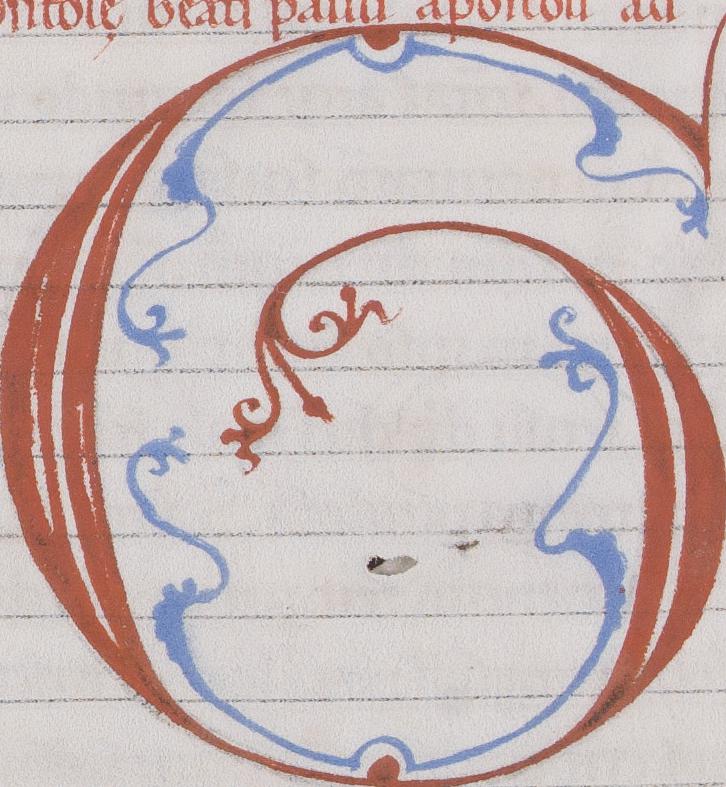 epistolę beati pauli apostoli ad
G